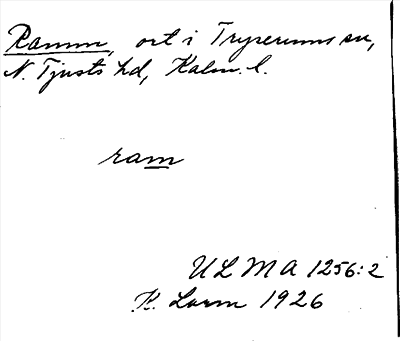 Ramm, ort i Tryserums sn,
N. Tjusts hd, Kalm. l.
ram
ULMA 1256:2
K. Lorm 1926